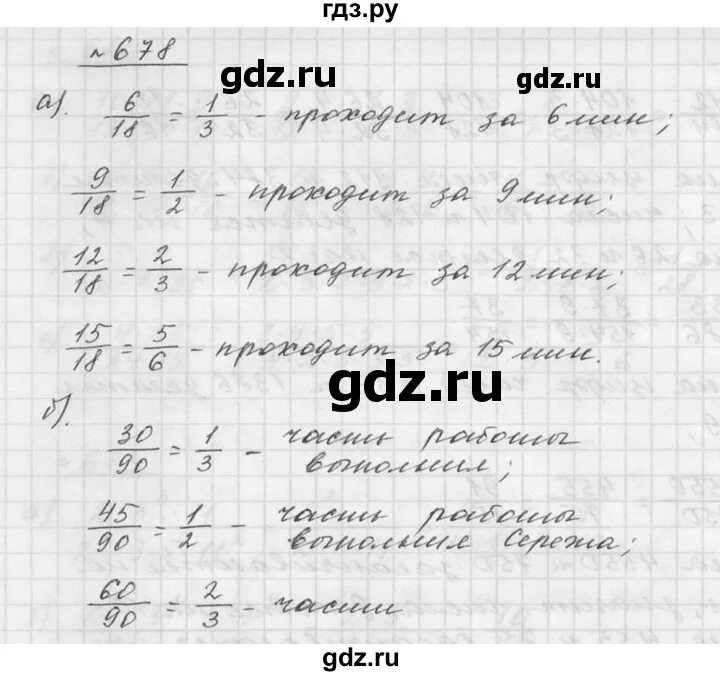 гдз.ру
№ 678
gdz.ru
а). 6/18 = 1/3 - проходит за 6 мин;
9/18 = 1/2 - проходит за 9 мин;
12/18 = 2/3 - проходит за 12 мин;
15/18 = 5/6 - проходит за 15 мин.
gdz.ru
б).
30/90 = 1/3 - часть работы
выполнил;
45/90 = 1/2 - часть работы
выполнил Сережа;
60/90 = 2/3 - части
gdz.ru
gdz.ru